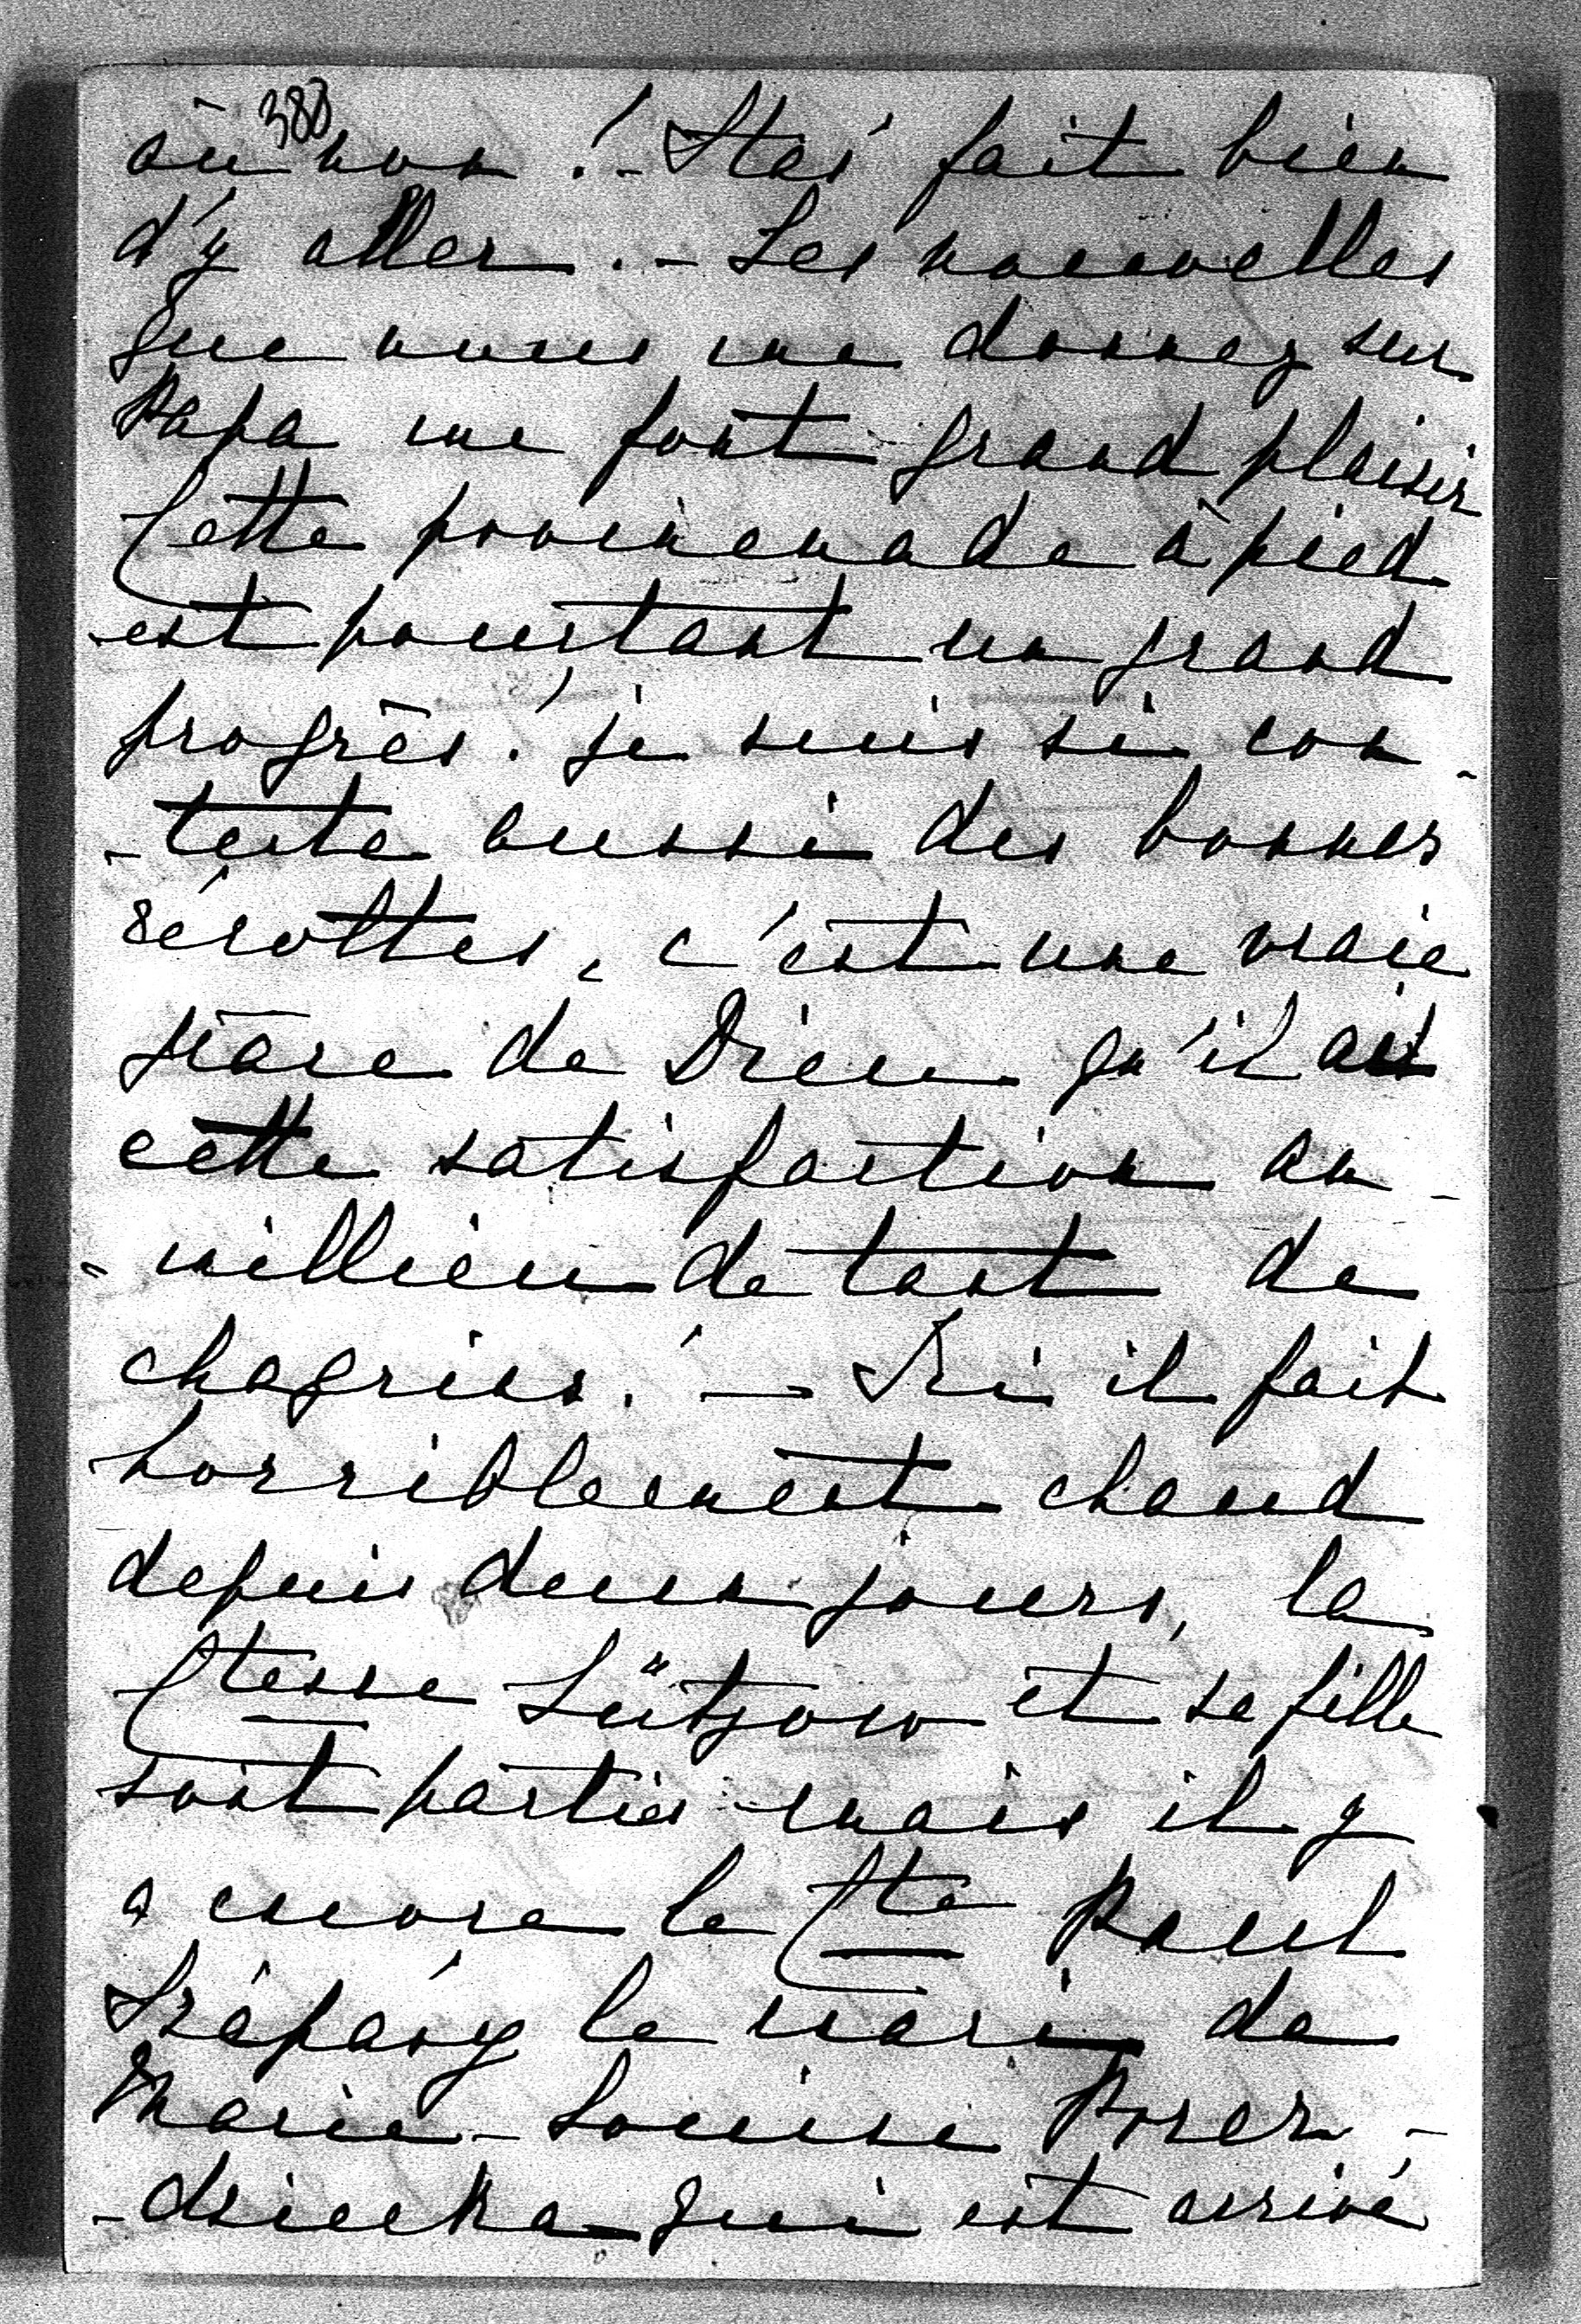 388
où non ! - Staś fait bien
d'y aller. - Les nouvelles
que vous me donnez sur
Papa me font grand plaisir
Cette promenade à pied
est pourtant un grand
progrès ! je suis si con-
-tente aussi des bonnes
récoltes, c'est une vraie
grâce de Dieu qu'il ait
cette satisfaction au-
-millieu de tant de
chagrins ! - Ici il fait
horriblement chaud
depuis deux jours, la
Ctesse Lützow et sa fille
sont parties mais il y
a encore le Cte Paul
Szápáry le mari de
Marie-Louise Przez-
-dziecka qui est arrivé